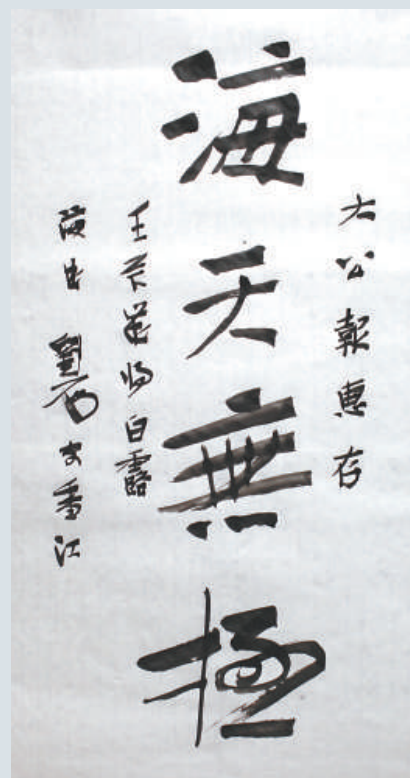 大公報惠存
海天無極
壬辰將白露
劉香江